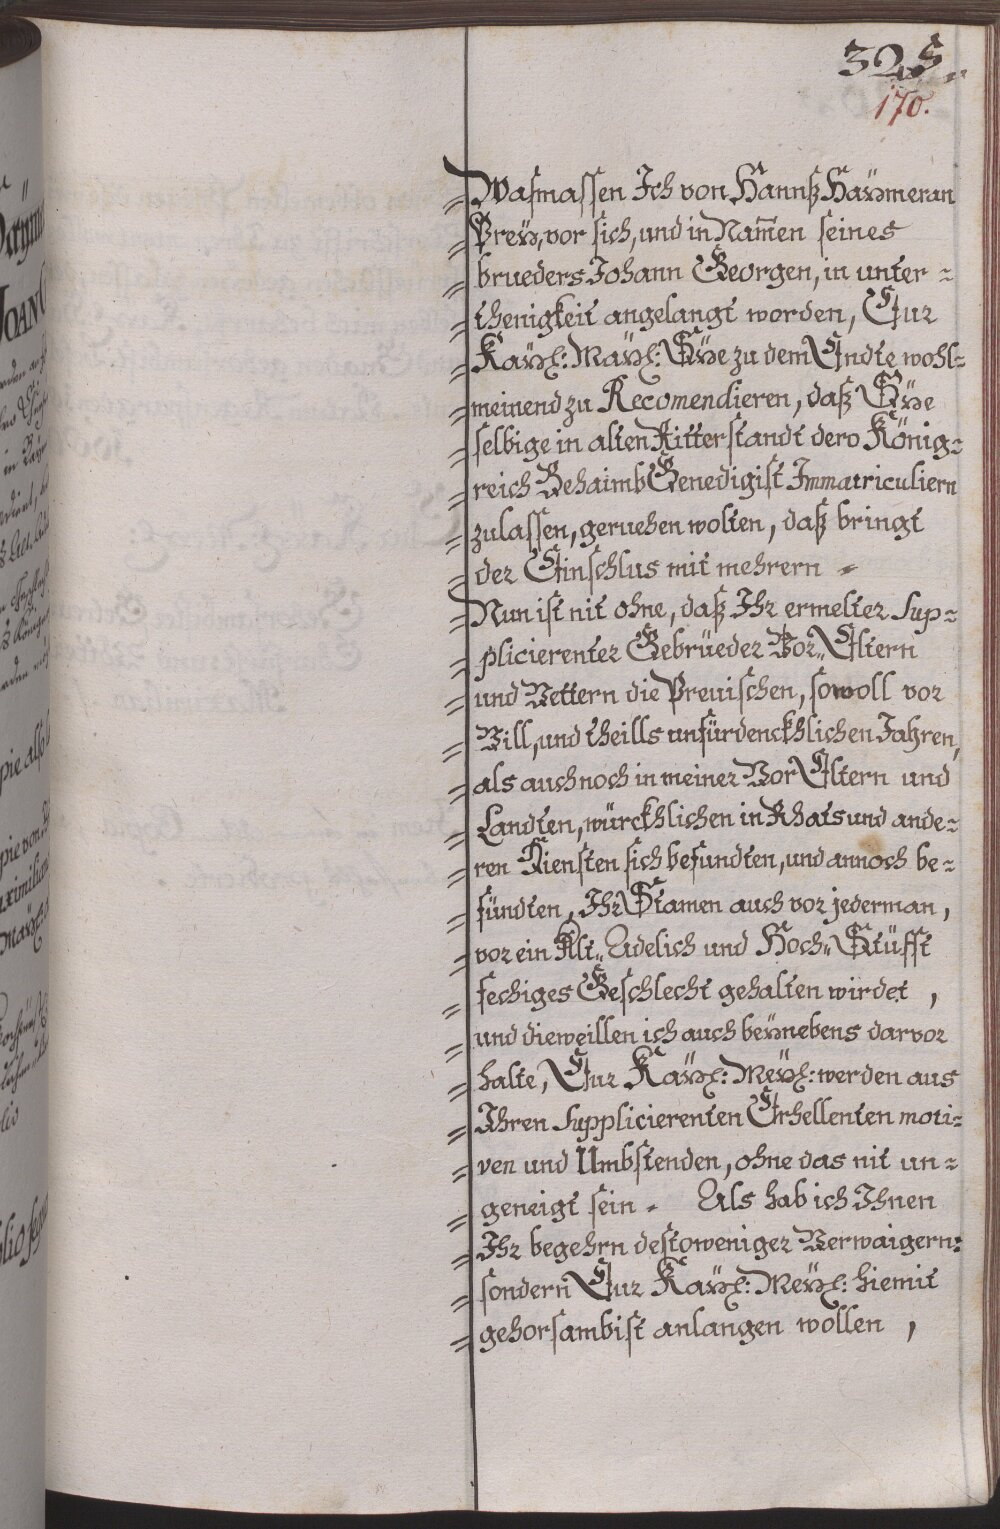 325.
170.
Wasmassen Ich von Hannß Haÿmeran
Preÿ, vor sich, und in Nam̄en seines
brueders Johann Georgen, in unter =
thenigkeit angelangt worden, Eur
Kaÿl: Maÿl: Sÿe zu dem Endte wohl=
meinend zu Recomendieren, daß Sÿe
selbige in alten Ritterstandt dero König=
reich Behaimb Genedigist Immatriculiern
zulassen, geruehen wolten, daß bringt
der Einschlus mit mehrern
Nun ist nit ohne, daß Ihr ermelter Sup=
plicierenter Gebrüeder Vor„ Eltern
und Vettern die Preuischen, sowoll vor
Vill, und theills unfürdenckhlichen Jahren,
als auch noch in meiner Vor Eltern und
Landten, würckhlichen in Rhats und ande=
ren Diensten sich befundten, und annoch be=
fündten, Ihr Stamen auch vor jederman,
vor ein Alt„ Adelich und Hoch„ Stüfft
fechiges Geschlecht gehalten wirdet ,
und dieweillen ich auch beÿnebens darvor
halte, Eur Kaÿl: Meÿl: werden aus
Ihren Supplicierenten Erhellenten moti=
ven und Umbstenden, ohne das nit un=
geneigt sein. Als hab ich Ihnen
Ihr begehrn destoweniger Verwaigern:
sondern Eur Kaÿl: Meÿl: hiemit
gehorsambist anlangen wollen ,